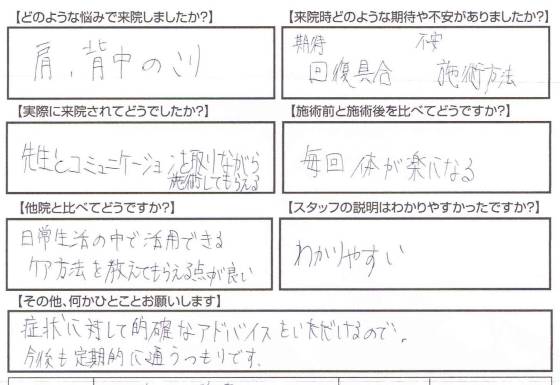 【どのような悩みで来院しましたか?】
肩、背中のこり
【来院時どのような期待や不安がありましたか?】
期待 不安
回復具合 施術方法
【実際に来院されてどうでしたか?】
先生とコミュニケーションを取りながら
施術してもらえる
【施術前と施術後を比べてどうですか?】
毎回体が楽になる
【他院と比べてどうですか?】
日常生活の中で活用できる
ケア方法を教えてもらえる点が良い
【スタッフの説明はわかりやすかったですか?】
わかりやすい
【その他、何かひとことお願いします】
症状に対して的確なアドバイスをいただけるので、
今後も定期的に通うつもりです。